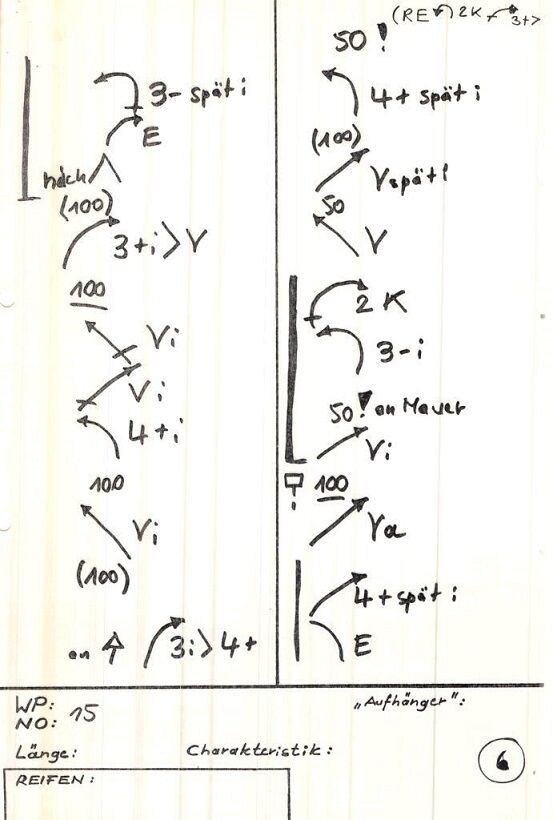 3- spät i
E
nach
(100)
3+i > V
100
Vi
Vi
4+i
100
Vi
(100)
on
3i > 4+
(RE 2K 3+>
50 !
4+ spät i
(100)
V spät i
50
V
2 K
3-i
50 ! on Mauer
Vi
100
Va
4+ spät i
E
WP:
NO: 15
Länge:
REIFEN:
„Aufhänger":
Charakteristik:
6